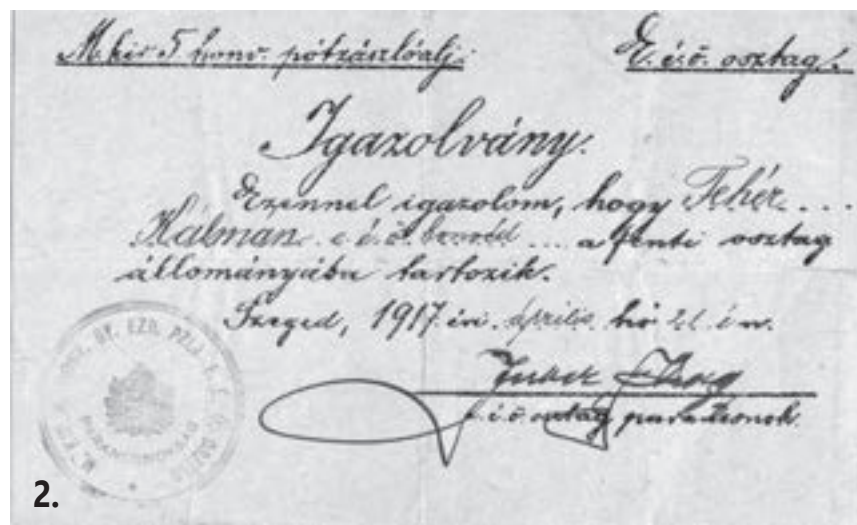 M. kir 5 honv. pótzászlóalj. E. é. ö. osztag.
Igazolvány.
Ezennel igazolom, hogy Fehér...
Kálmán e. é. ö. honvéd ... a fenti osztag
állományába tartozik.
Szeged, 1917. évi. április hó 21. én.
e. é. ö. osztag parancsnok.
PARANCSNOKSÁG
2.